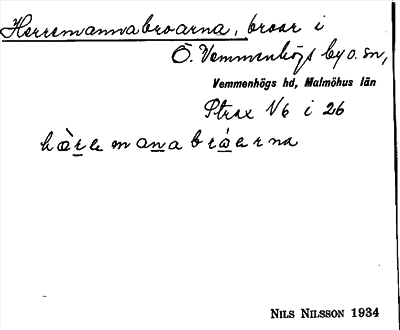 Herremannabroarna, broar i
Ö. Vemmenhögs by o. sn,
Vemmenhögs hd, Malmöhus län
Strax V6 i 26
hær̲e man̲abrå̲erna
NILS NILSSON 1934